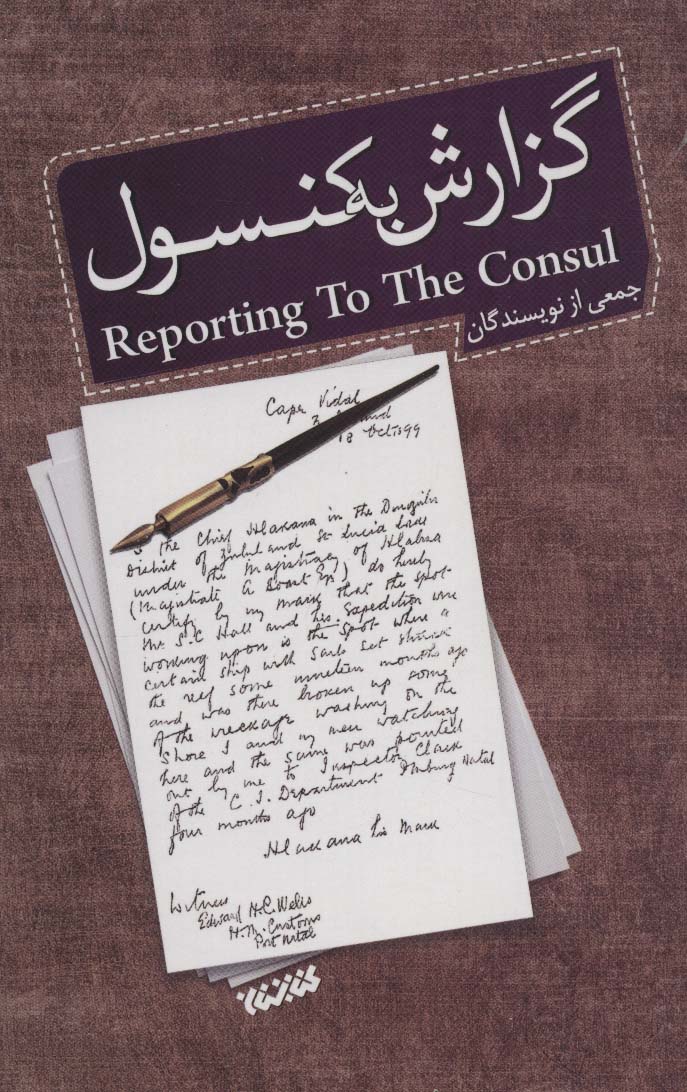 گزارش به کنسول
Reporting To The Consul
جمعی از نویسندگان
Cape Vidal
Zululand
18 Oct 1899
I the Chief Hlakana in the
District of Zululand St Lucia
under the Magistracy of Hlabisa
(Magistrate A Boast Esq) do hereby
certify by my mark that the spot
Mr. S.C Hall and his Expedition are
working upon is the spot where a
certain ship with sails set struck
the reef some nineteen months ago
and was there broken up some
of the wreckage washing on the
Shore I and my men watching
here and the same was pointed
out by me to Inspector Clark
of the C. I. Department Natal
four months ago
Hlakana his Mark
Witness
Edward H.C. Wells
H.M. Customs
Port Natal
کتابستان